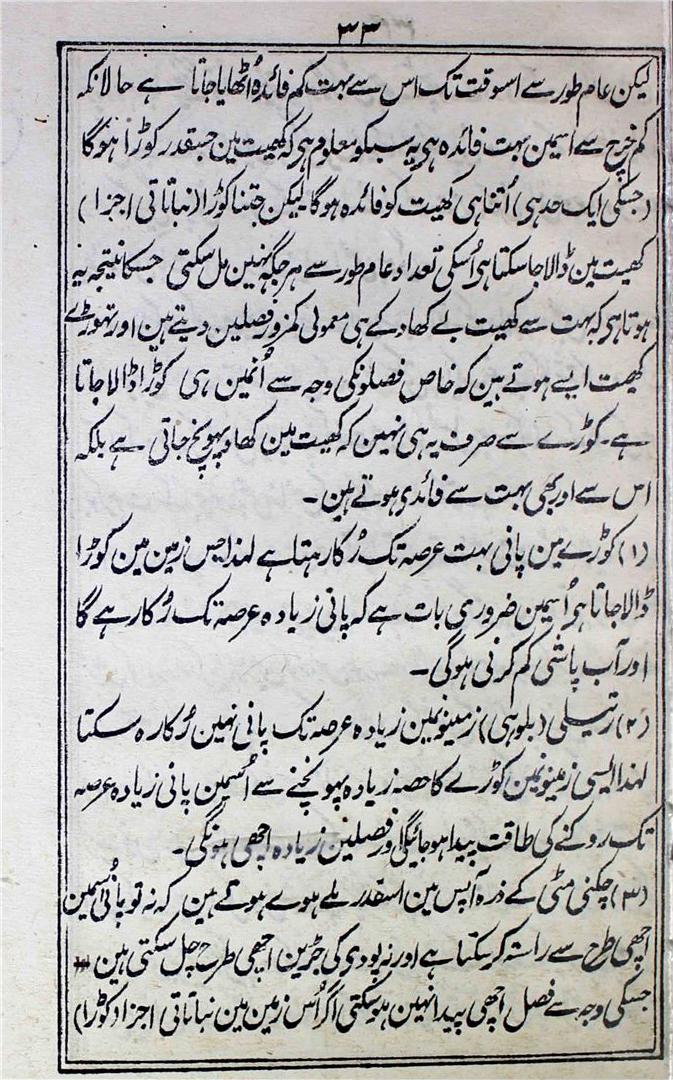 ۳۳
لیکن عام طور سے اسوقت تک اس سے بہت کم فائدہ اُٹھایا جاتا ہے حالانکہ
کم خرچ سے اسمین بہت فائدہ ہی یہ سبکو معلوم ہی کہ کھیت مین جسقدر کوڑا ہوگا
(جسکی ایک حد ہی) اُتنا ہی کھیت کو فائدہ ہوگا لیکن جتنا کوڑا (نباتاتی اجزا)
کھیت مین ڈالا جا سکتا ہی اُسکی تعداد عام طور سے ہر جگہ نہین مل سکتی جسکا نتیجہ یہ
ہوتا ہی کہ بہت سے کھیت بے کھاد کے ہی معمولی کمزور فصلین دیتے ہین اور تھوڑے
کھیت ایسے ہوتے ہین کہ خاص فصلونکی وجہ سے اُنمین ہی کوڑا ڈالا جاتا
ہے۔ کوڑے سے صرف یہ ہی نہین کہ کھیت مین کھاد پہونچ جاتی ہے بلکہ
اس سے اور بھی بہت سے فائدی ہوتے ہین۔
(۱) کوڑے مین پانی بہت عرصہ تک رُکا رہتا ہے لہذا جس زمین مین کوڑا
ڈالا جاتا ہی اُسمین ضروری بات ہے کہ پانی زیادہ عرصہ تک رُکا رہے گا
اور آب پاشی کم کرنی ہوگی۔
(۲) رتیلی (بلوہی) زمینونمین زیادہ عرصہ تک پانی نہین رُکا رہ سکتا
لہذا ایسی زمینونمین کوڑے کا حصہ زیادہ پہونچنے سے اُسمین پانی زیادہ عرصہ
تک روکنے کی طاقت پیدا ہو جائیگی اور فصلین زیادہ اچھی ہونگی۔
(۳) چکنی مٹی کے ذرہ آپس مین اسقدر ملے ہوے ہوتے ہین کہ نہ تو پانی اُسمین
اچھی طرح سے راستہ کر سکتا ہے اور نہ پودی کی جڑین اچھی طرح چل سکتی ہین
جسکی وجہ سے فصل اچھی پیدا نہین ہو سکتی اگر اُس زمین مین نباتاتی اجزا دکوڑا)